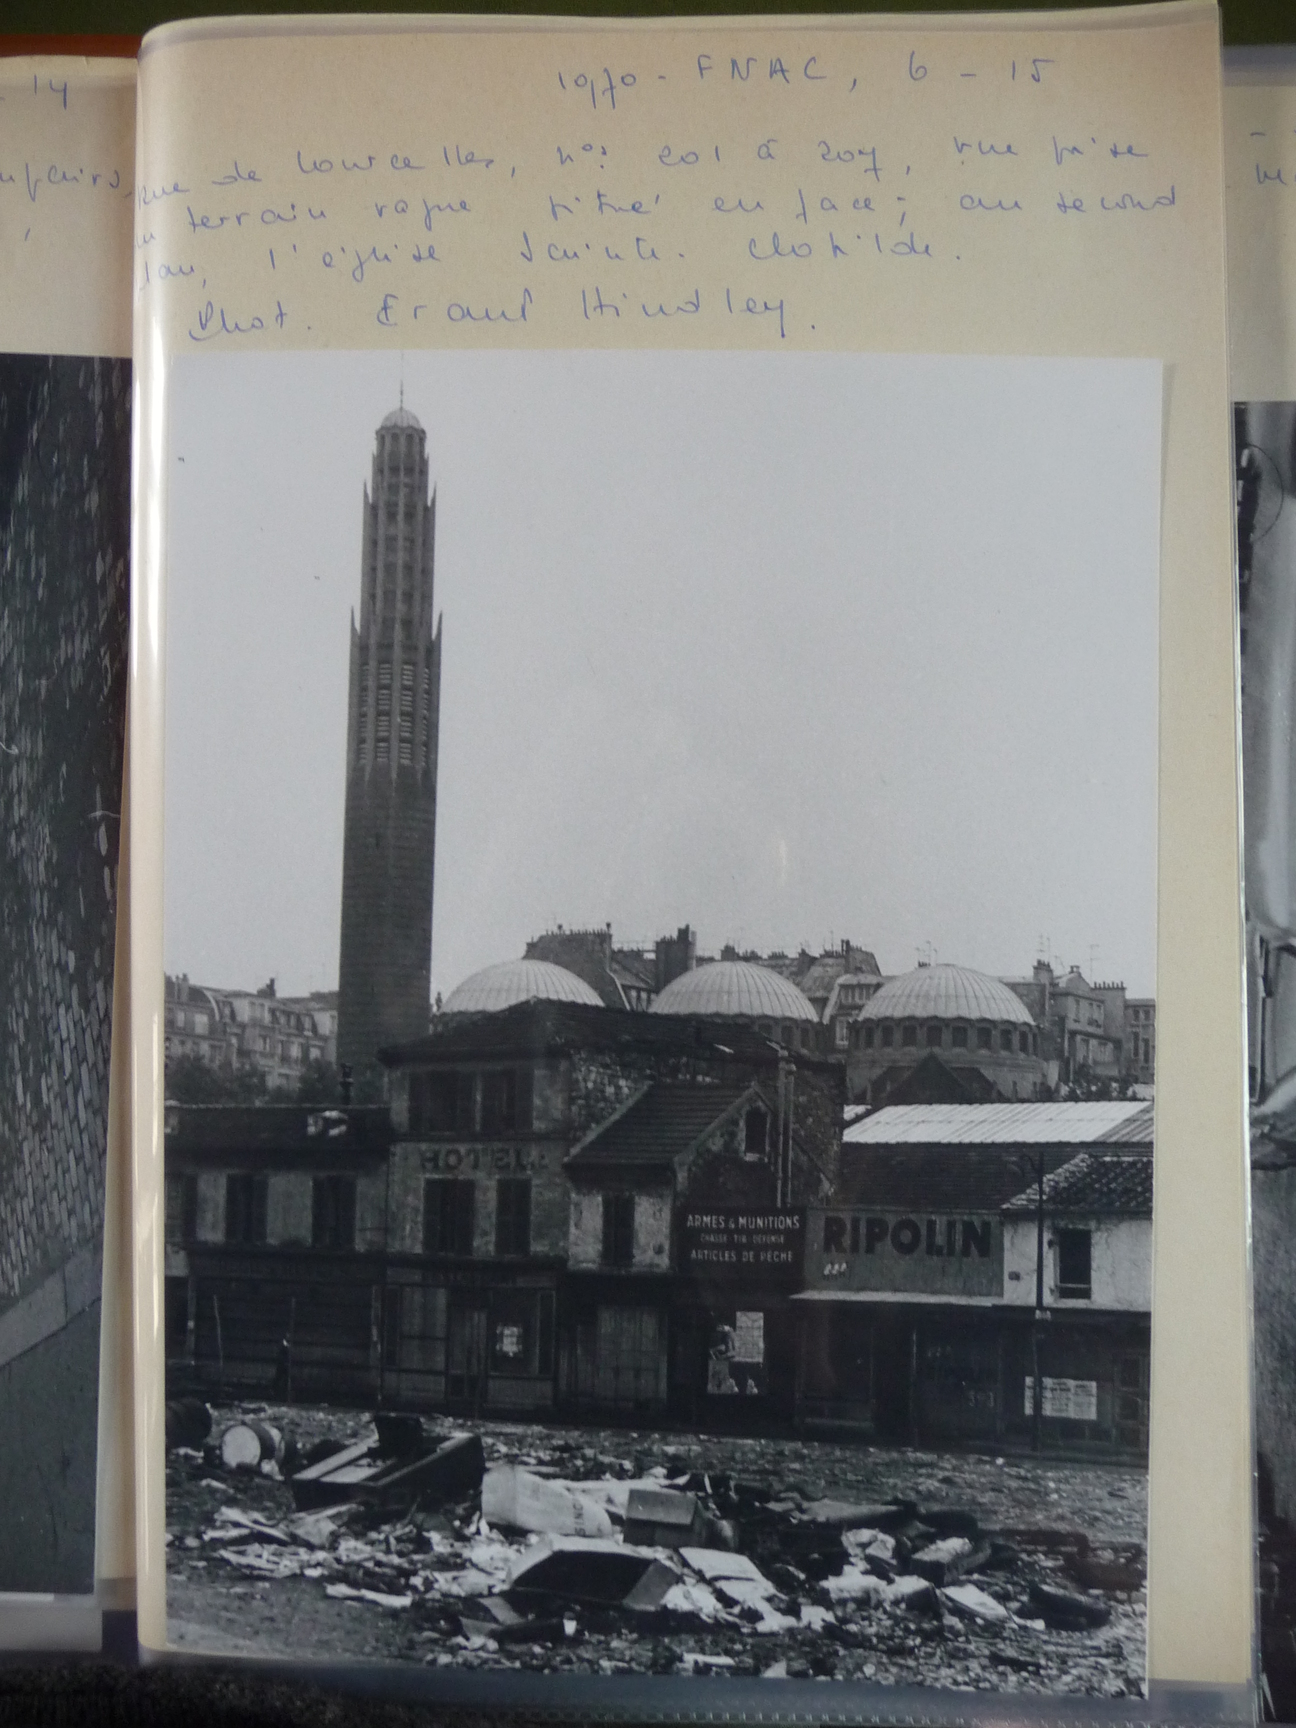 1970 - FNAC, 6 - 15
Rue de Courcelles, nos 201 à 207, vue prise
du terrain vague situé en face ; au second
plan, l'église Sainte. Clotilde.
Phot. Hindley.
- 14
HOTEL
ARMES & MUNITIONS
CHASSE TIR DEFENSE
ARTICLES DE PÊCHE
RIPOLIN